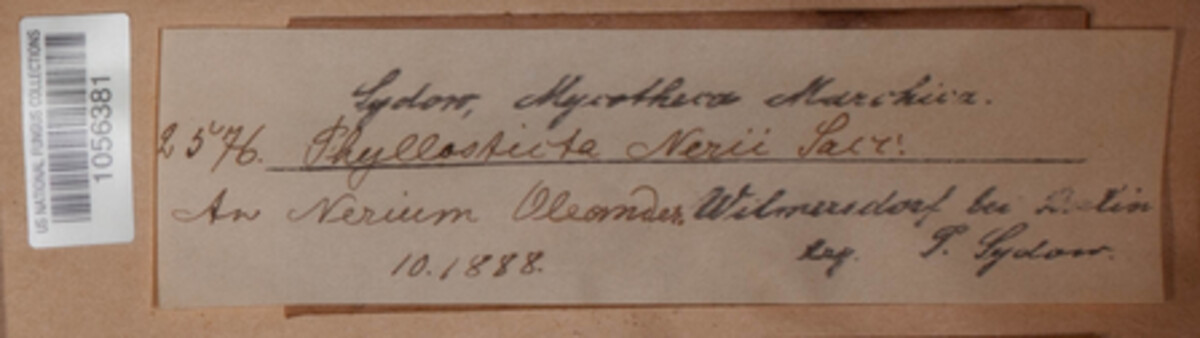 US NATIONAL FUNGUS COLLECTIONS
1056381
Sydow, Mycotheca Marchica.
2576. Phyllosticta Nerii Sacc.
An Nerium Oleander. Wilmersdorf bei Berlin
10.1888. leg. P. Sydow.